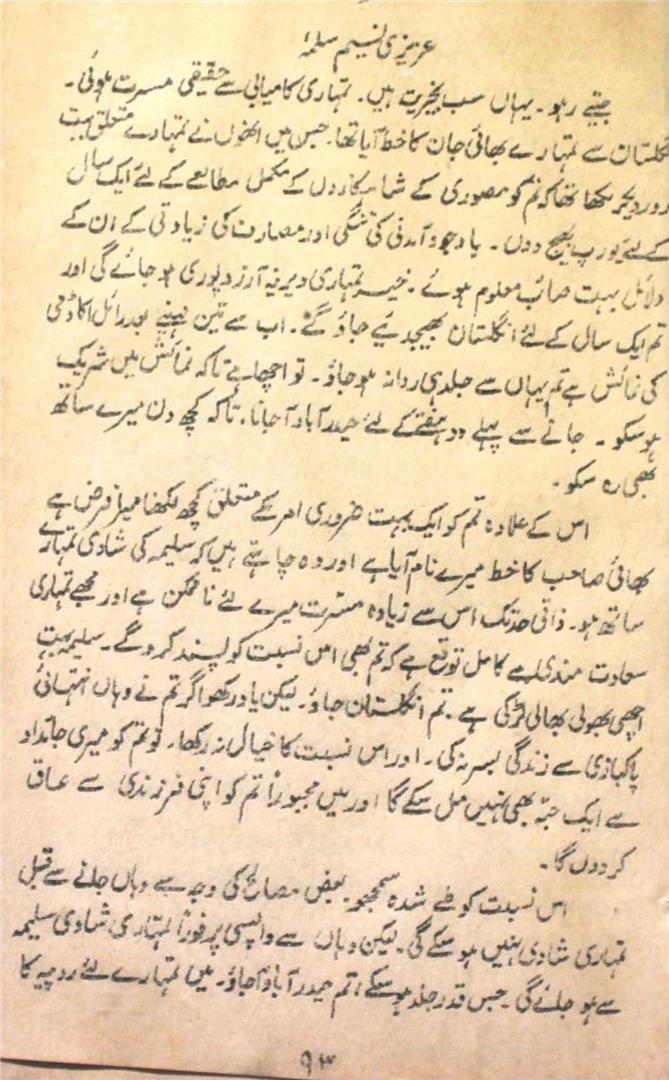 عزیزی نسیم سلمہٗ
جیتے رہو۔ یہاں سب بخیریت ہیں۔ تمہاری کامیابی سے حقیقی مسرت ہوئی۔
انگلستان سے تمہارے بھائی جان کا خط آیا تھا۔ جس میں انھوں نے تمہارے متعلق بہت
زور دیکر لکھا تھا کہ تم کو مصوری کے شاہکاروں کے مکمل مطالعے کے لئے ایک سال
کے لئے یورپ بھیج دوں۔ باوجود آمدنی کی تنگی اور مصارف کی زیادتی کے ان کے
دلائل بہت صائب معلوم ہوئے۔ خیر تمہاری دیرینہ آرزو پوری ہو جائے گی اور
تم ایک سال کے لئے انگلستان بھیجدئیے جاؤ گے۔ اب سے تین مہینے بعد رائل اکاڈمی
کی نمائش ہے تم یہاں سے جلد ہی روانہ ہو جاؤ۔ تو اچھا ہے تاکہ نمائش میں شریک
ہو سکو۔ جانے سے پہلے دو ہفتے کے لئے حیدرآباد آ جانا۔ تاکہ کچھ دن میرے ساتھ
بھی رہ سکو۔
اس کے علاوہ تم کو ایک بہت ضروری امر کے متعلق کچھ لکھنا میرا فرض ہے
بھائی صاحب کا خط میرے نام آیا ہے اور وہ چاہتے ہیں کہ سلیمہ کی شادی تمہارے
ساتھ ہو۔ ذاتی حد تک اس سے زیادہ مسرت میرے لئے ناممکن ہے اور مجھے تمہاری
سعادت مندی سے کامل توقع ہے کہ تم بھی اس نسبت کو پسند کرو گے۔ سلیمہ بہت
اچھی بھولی بھالی لڑکی ہے۔ تم انگلستان جاؤ۔ لیکن یاد رکھو اگر تم نے وہاں انتہائی
پاکبازی سے زندگی بسر نہ کی۔ اور اس نسبت کا خیال نہ رکھا۔ تو تم کو میری جائداد
سے ایک حبّہ بھی نہیں مل سکے گا اور میں مجبوراً تم کو اپنی فرزندی سے عاق
کر دوں گا۔
اس نسبت کو طے شدہ سمجھو۔ بعض مصالح کی وجہ سے وہاں جانے سے قبل
تمہاری شادی نہیں ہو سکے گی۔ لیکن وہاں سے واپسی پر فوراً تمہاری شادی سلیمہ
سے ہو جائے گی۔ جس قدر جلد ہو سکے، تم حیدرآباد آ جاؤ۔ میں تمہارے لئے روپیہ کا
۹۳